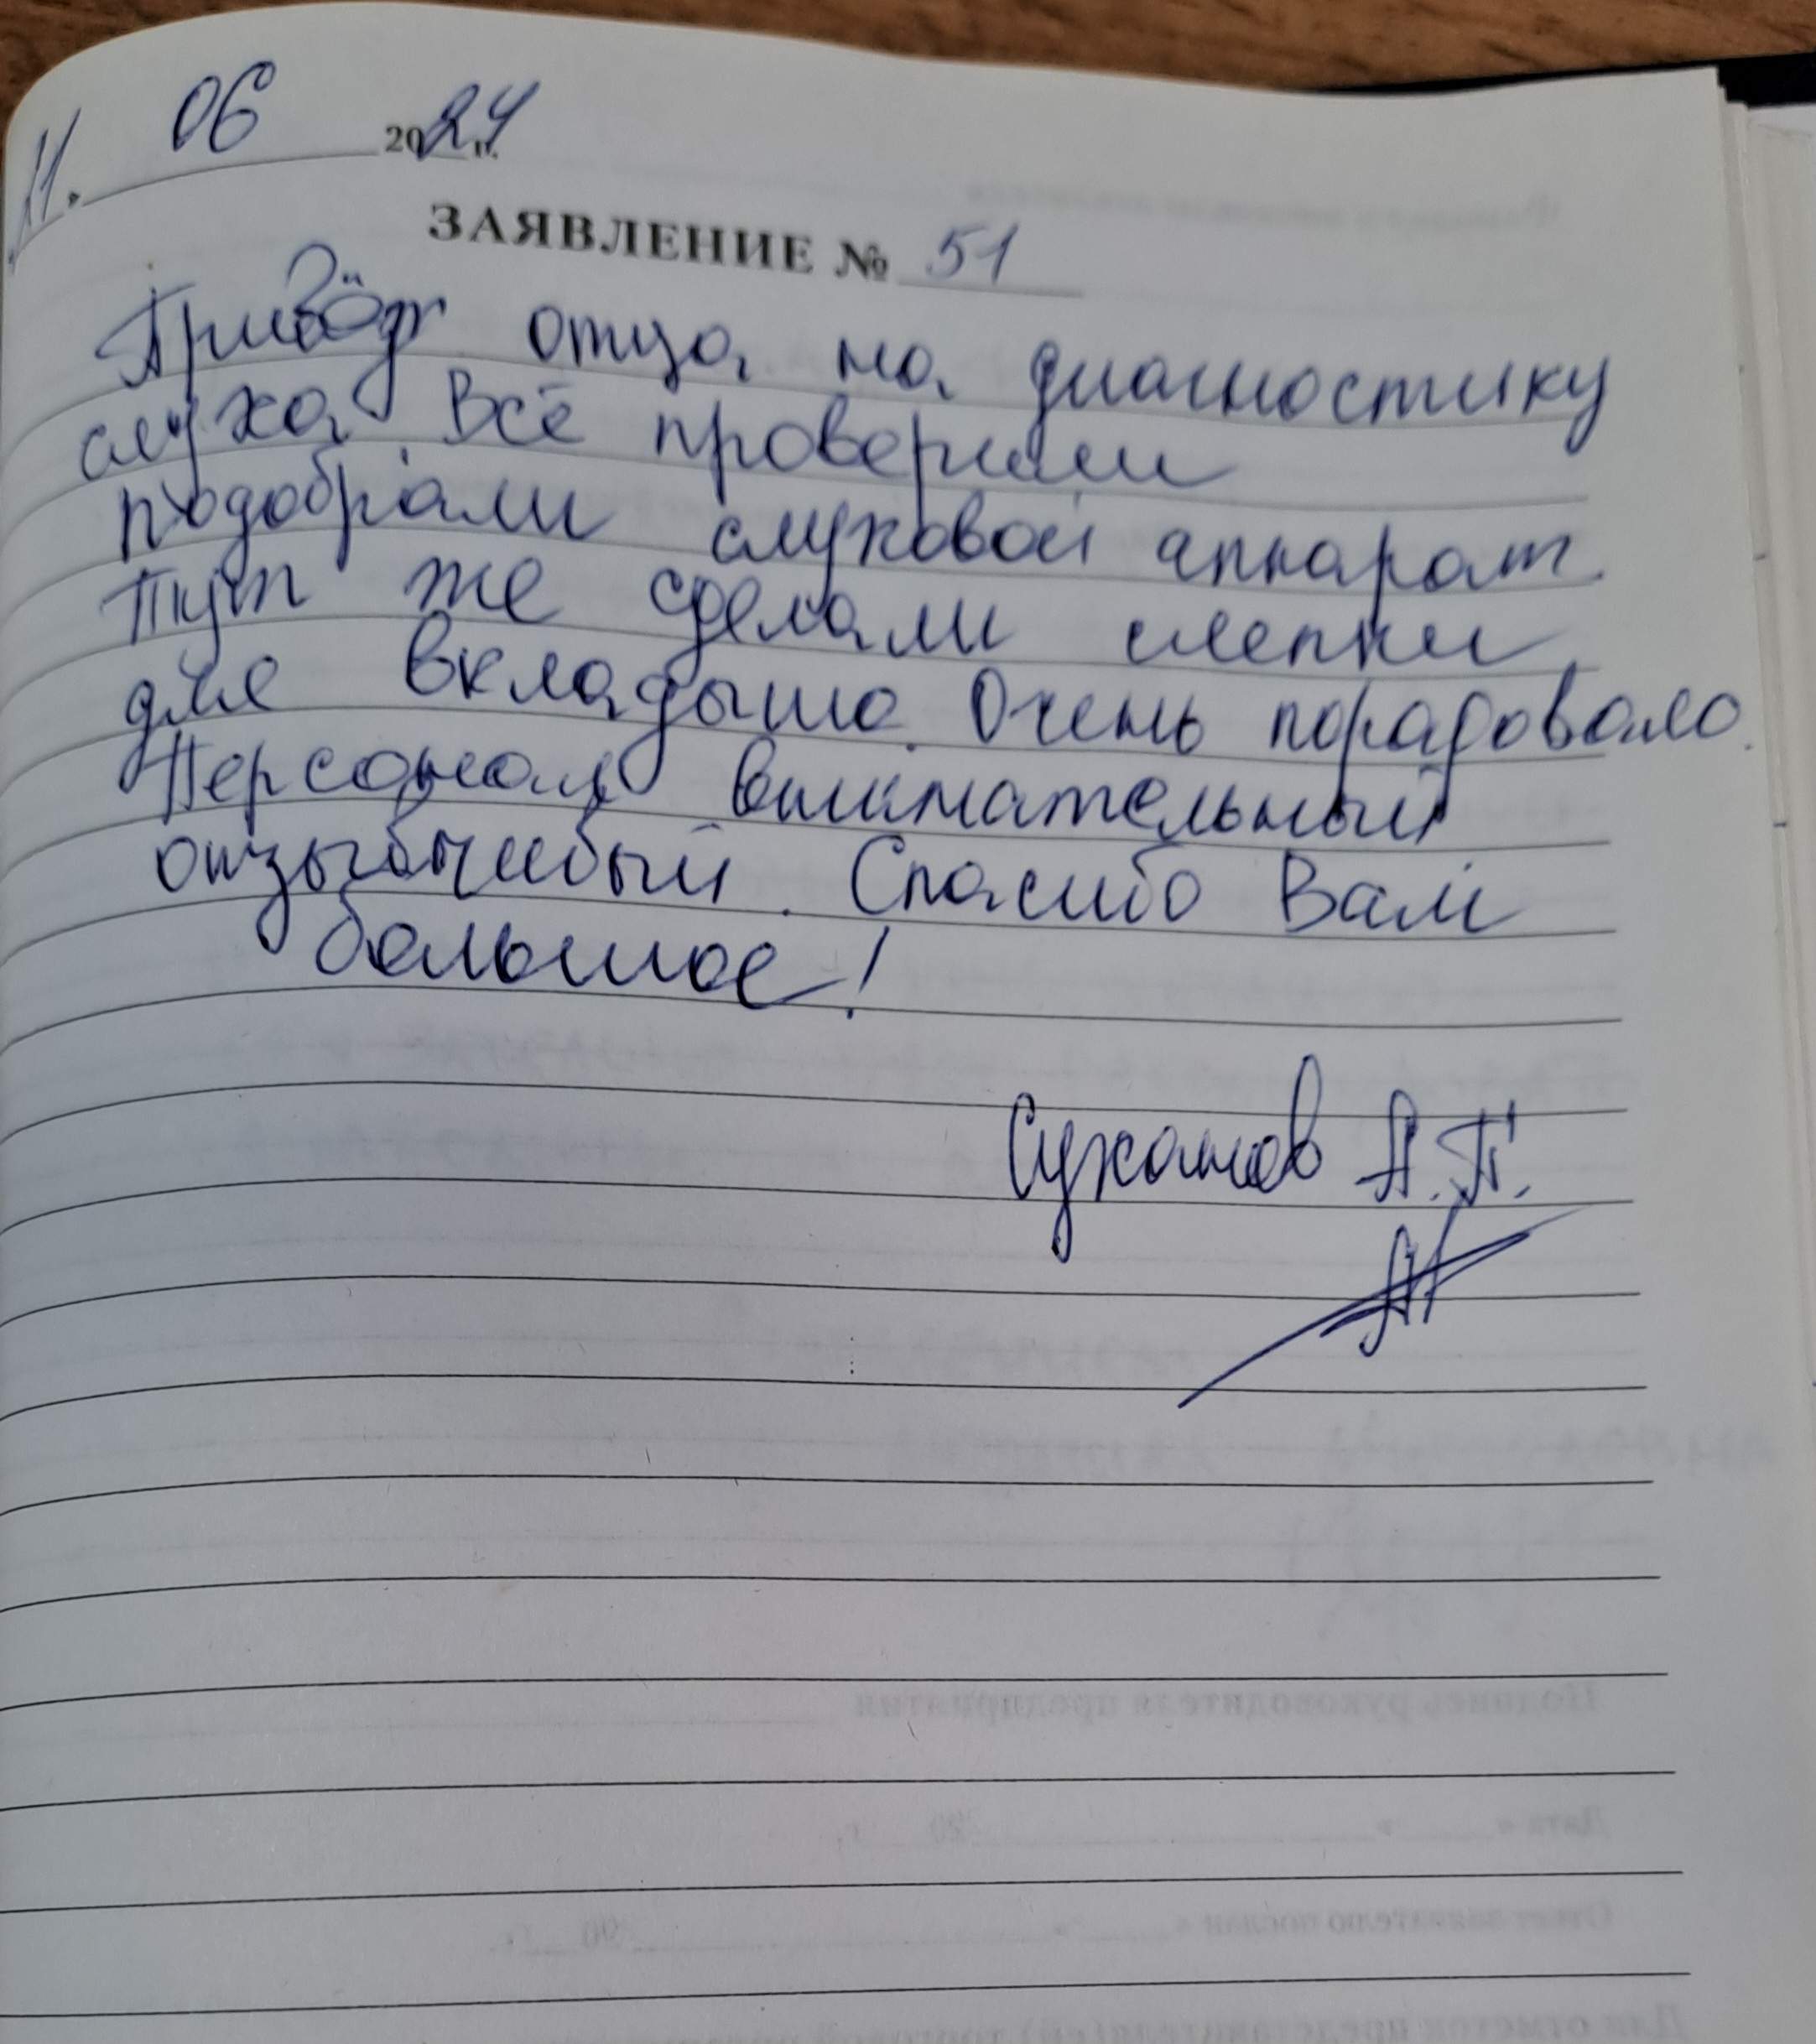 11. 06 2024 г.
ЗАЯВЛЕНИЕ № 51
Привёз отца на диагностику
слуха. Всё проверили
подобрали слуховой аппарат.
Тут же сделали слепки
для вкладыша. Очень порадовало.
Персонал внимательный
отзывчивый. Спасибо Вам
большое!
Суханов А.П.